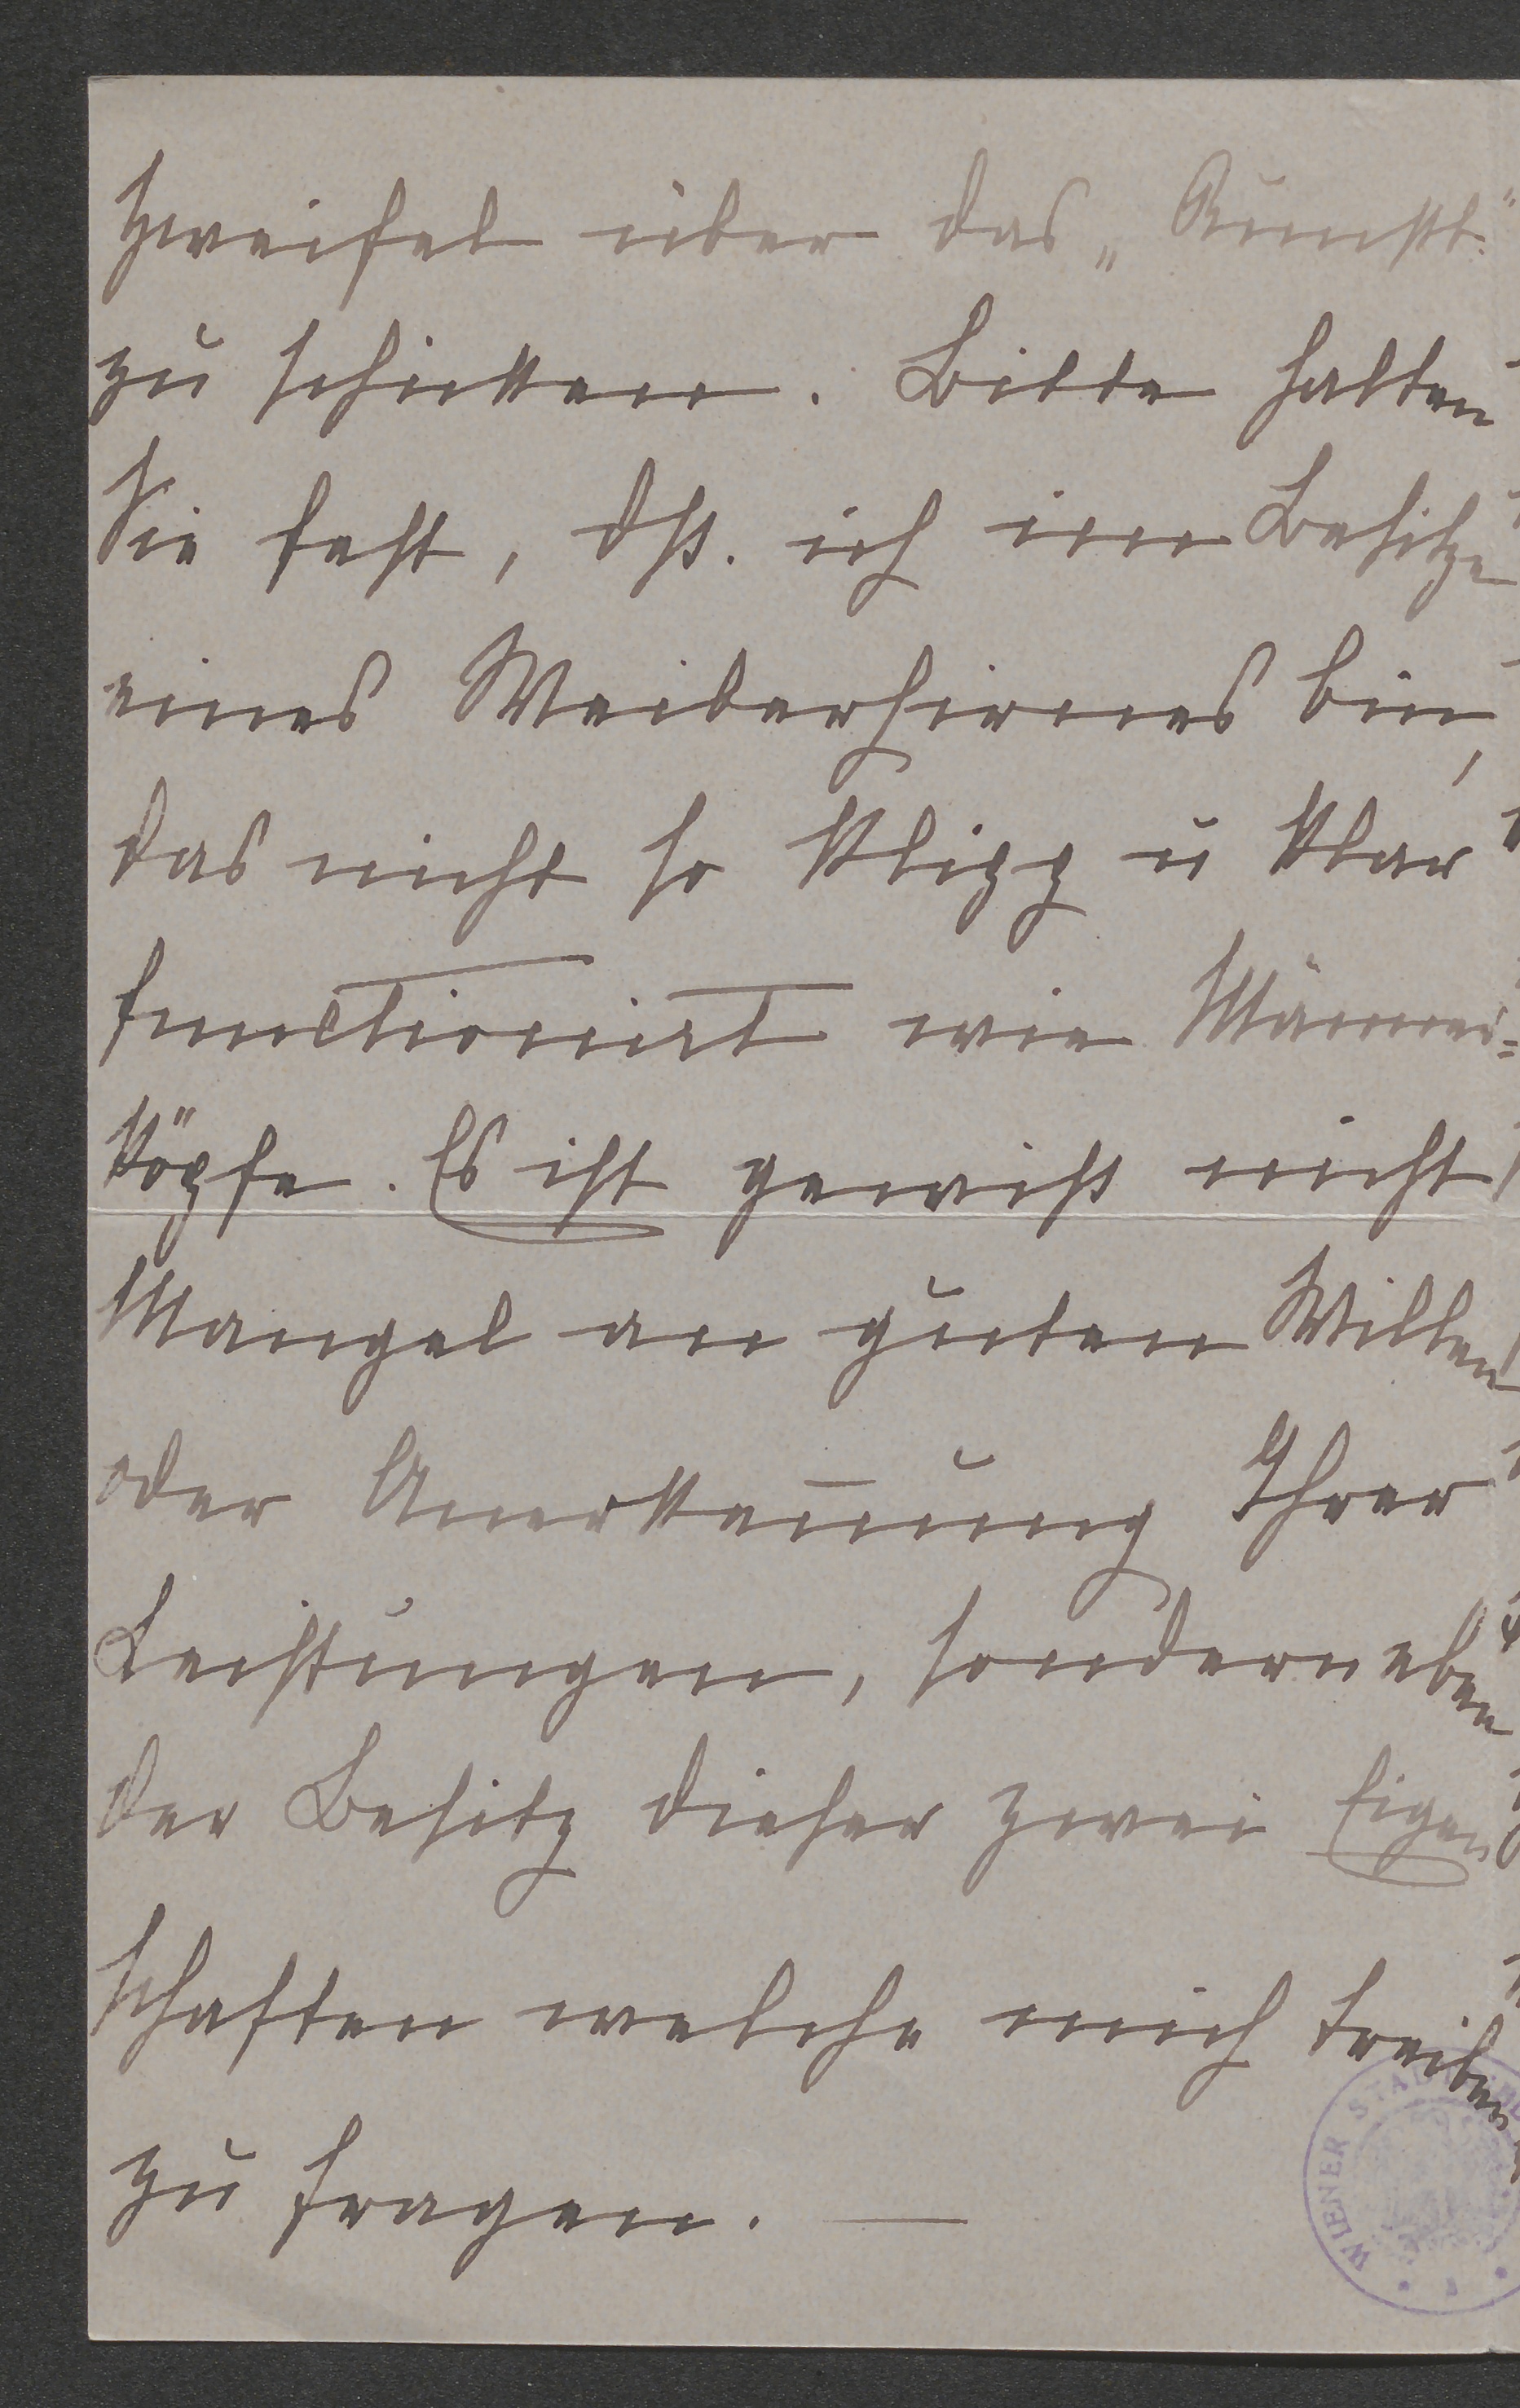 Zweifel über das „Kunst."
zu schicken. Bitte halten
Sie fest, dß. ich im Besitze
eines Weiberhirnes bin,
das nicht so klipp u klar
functionirt wie Männer=
köpfe. Es ist gewiß nicht
Mangel an guten Willen
oder Anerkennung Ihrer
Leistungen, sondern eben
der Besitz dieser zwei Eigen
schaften welche mich treiben
zu fragen. —
WIENER STADT